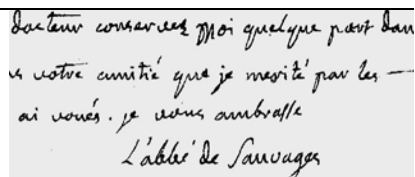 docteur conservez moi quelque part dan
s votre amitié que je merité par les —
ai voués. je vous ambrasse
L'abbé de Sauvages